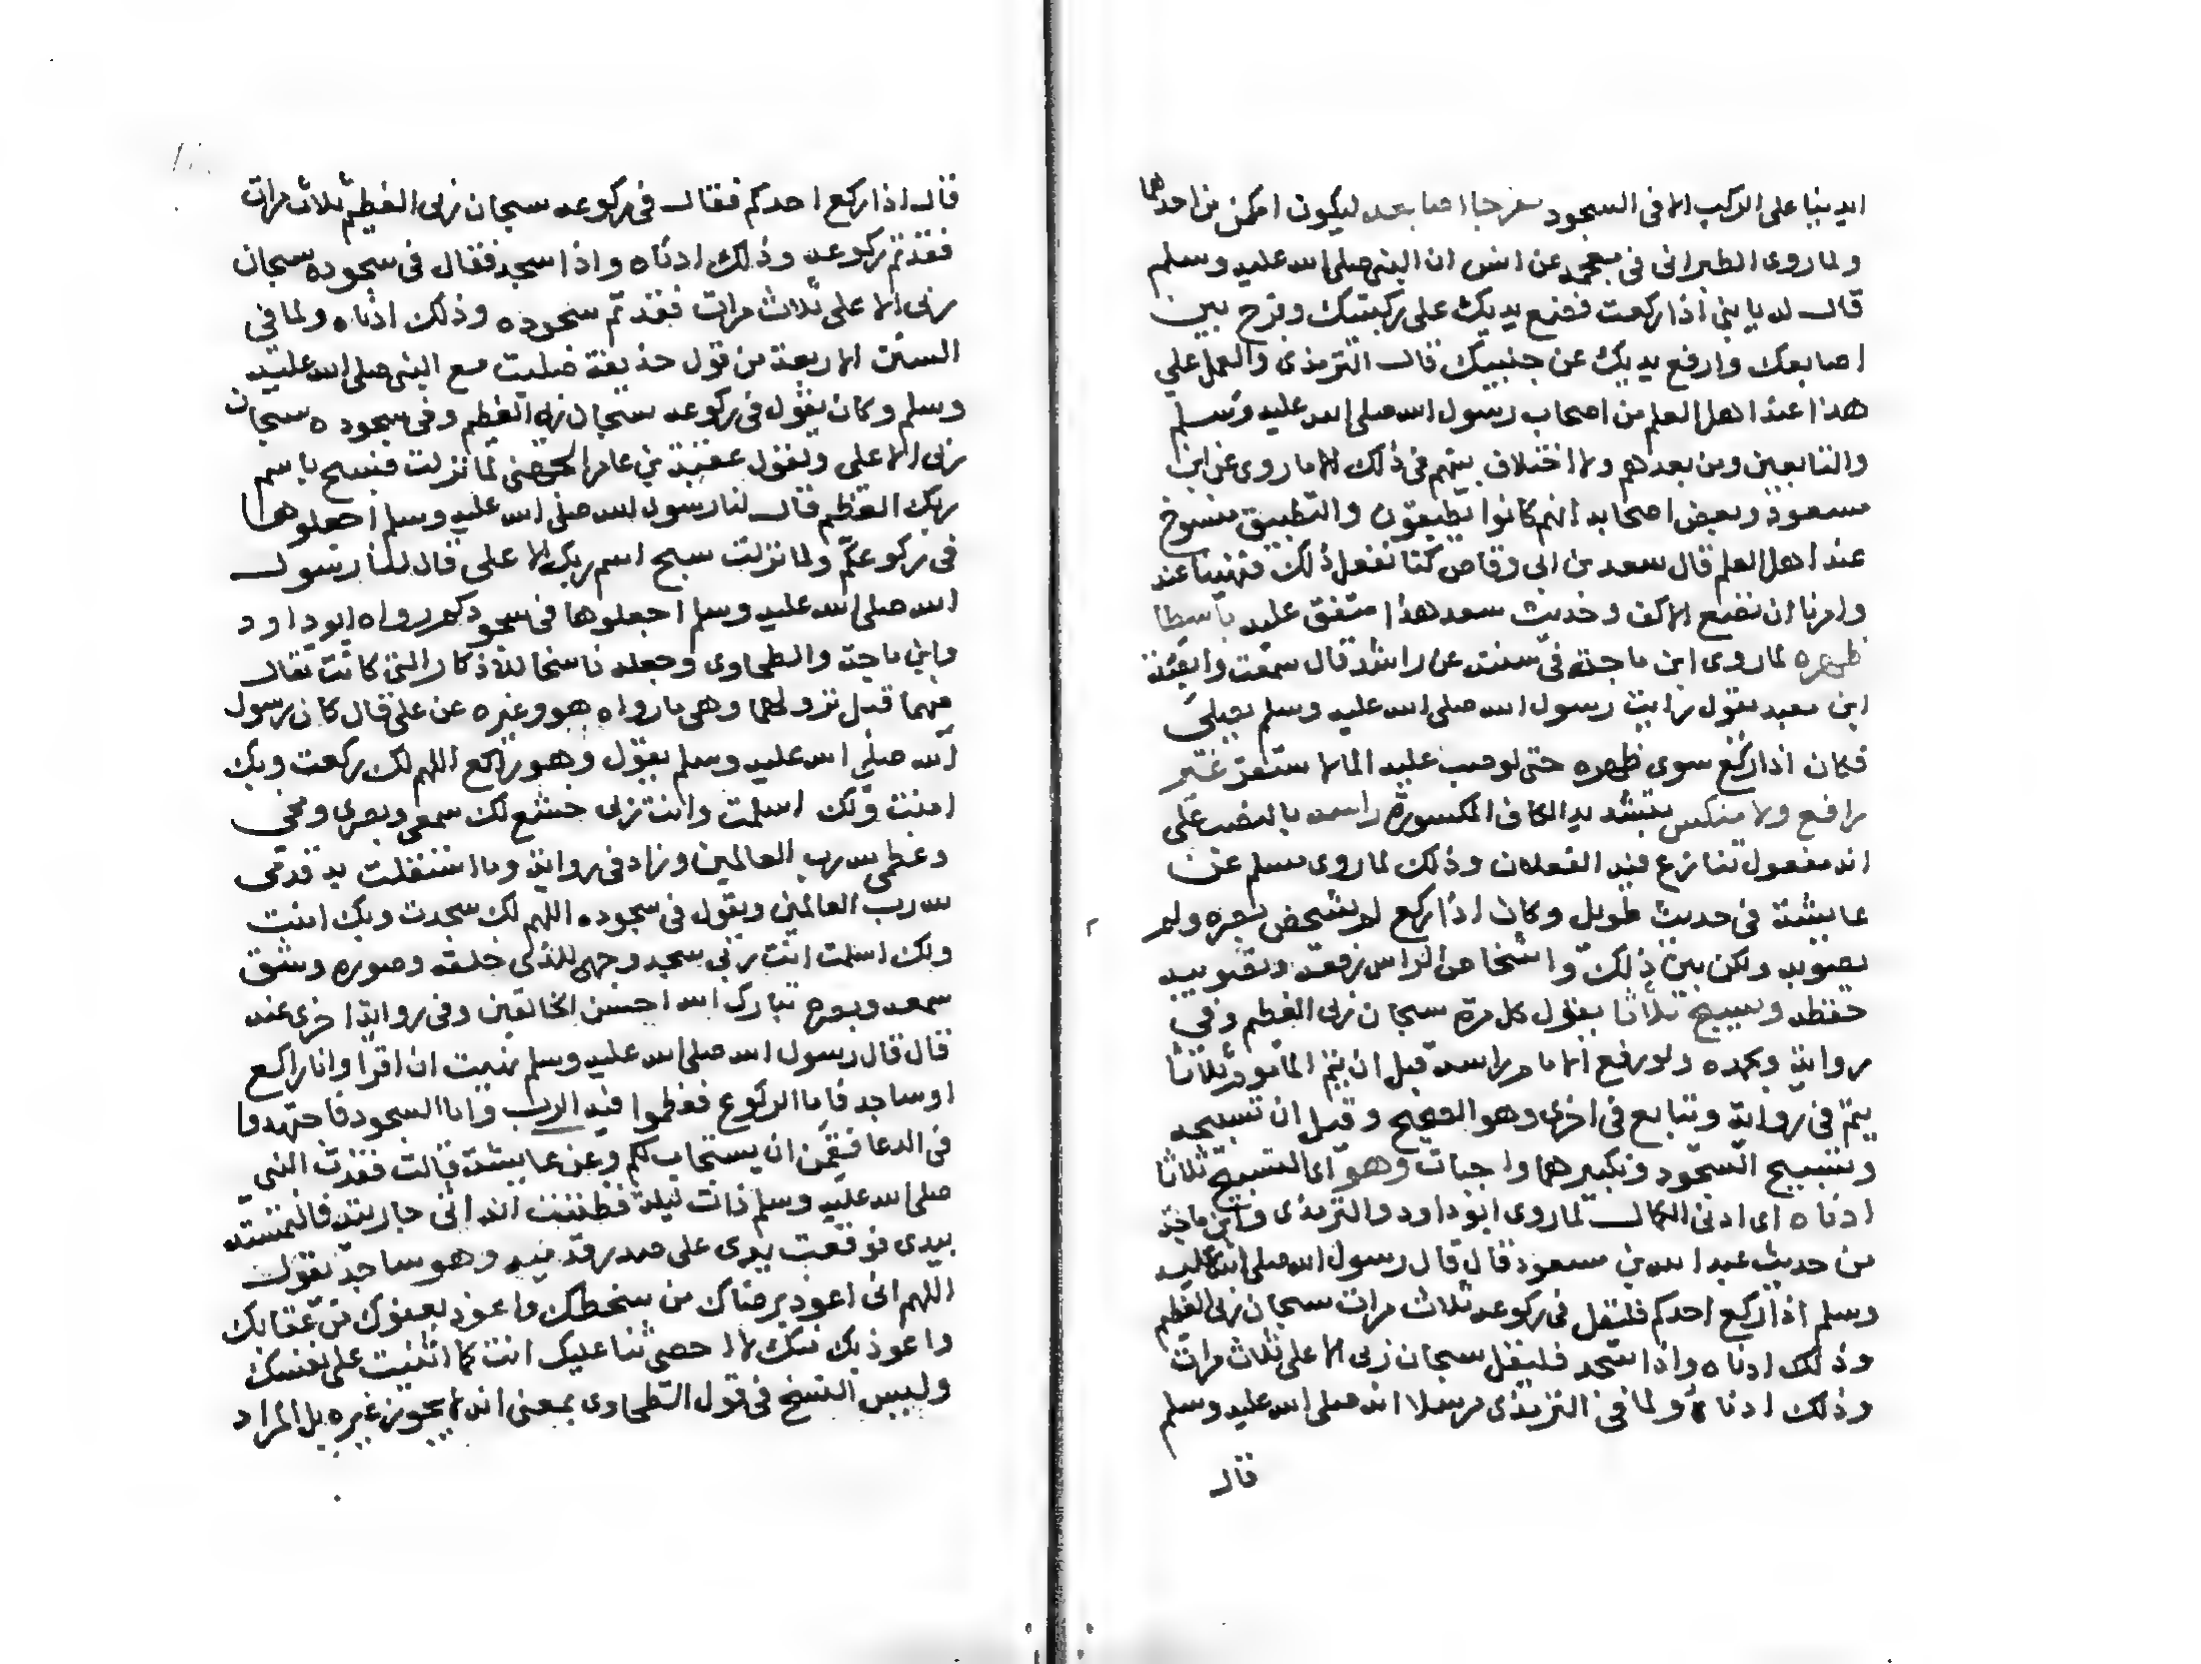 اليدين على الركب الا فى السجود مفرجا اصابعه ليكون امكن من اخدها
ولما روى الطبرانى فى معجمه عن انس ان النبى صلى الله عليه وسلم
قال له يا بنى اذا ركعت فضع يديك على ركبتيك وفرج بين
اصابعك وارفع يديك عن جنبيك قال الترمذى والعمل على
هذا عند اهل العلم من اصحاب رسول الله صلى الله عليه وسلم
والتابعين ومن بعدهم ولا اختلاف بينهم فى ذلك الا ما روى عن ابن
مسعود وبعض اصحابه انهم كانوا يطبقون والتطبيق منسوخ
عند اهل العلم قال سعد بن ابى وقاص كنا نفعل ذلك فنهينا عنه
وامرنا ان نضع الاكف وحديث سعد هذا متفق عليه باسطا
ظهره لما روى ابن ماجة فى سننه عن راشد قال سمعت وابصة
ابن معبد يقول رايت رسول الله صلى الله عليه وسلم يصلى
فكان اذا ركع سوى ظهره حتى لو صب عليه الما لاستقر غير
رافع ولا منكس بتشديد الكاف المكسورة راسه بالنصب على
انه مفعول تنازع فيه الفعلان وذلك لما روى مسلم عن
عايشة فى حديث طويل وكان اذا ركع لم يشخص بصره ولم
يصوبه ولكن بين ذلك واشخاص الراس رفعه وتصويبه
خفظه ويسبح ثلاثا يقول كل مرة سبحان ربى العظيم وفى
رواية وبحمده ولو رفع الامام راسه قبل ان يتم الماموم ثلاثا
يتم فى رواية ويتابع فى اخرى وهو الصحيح وقيل ان تسبيحه
وتسبيح السجود وتكبيرهما واجبات وهو اى التسبيح ثلاثا
ادناه اى ادنى الكمال لما روى ابو داود والترمذى وابن ماجة
من حديث عبد الله بن مسعود قال قال رسول الله صلى الله عليه
وسلم اذا ركع احدكم فليقل فى ركوعه ثلاث مرات سبحان ربى العظيم
وذلك ادناه واذا سجد فليقل سبحان ربى الاعلى ثلاث مرات
وذلك ادناه ولما فى الترمذى مرسلا انه صلى الله عليه وسلم
قال
قال اذا ركع احدكم فقال فى ركوعه سبحان ربى العظيم ثلاث مرات
فقد تم ركوعه وذلك ادناه واذا سجد فقال فى سجوده سبحان
ربى الاعلى ثلاث مرات فقد تم سجوده وذلك ادناه ولما فى
السنن الاربعة من قول حذيفة صليت مع النبى صلى الله عليه
وسلم وكان يقول فى ركوعه سبحان ربى العظيم وفى سجوده سبحان
ربى الاعلى وبقول عقبة بن عامر الجهنى لما نزلت فسبح باسم
ربك العظيم قال لنا رسول الله صلى الله عليه وسلم اجعلوها
فى ركوعكم ولما نزلت سبح اسم ربك الاعلى قال لنا رسول
الله صلى الله عليه وسلم اجعلوها فى سجودكم رواه ابو داود
وابن ماجة والطحاوى وجعله ناسخا للاذكار التى كانت تقال
فيهما قبل نزولهما وهى ما رواه هو وغيره عن على قال كان رسول
الله صلى الله عليه وسلم يقول وهو راكع اللهم لك ركعت وبك
امنت ولك اسلمت وانت ربى خشع لك سمعى وبصرى ومخى
وعظمى لله رب العالمين وزاد فى رواية وما استقلت به قدمى
لله رب العالمين ويقول فى سجوده اللهم لك سجدت وبك امنت
ولك اسلمت انت ربى سجد وجهى للذى خلقه وصوره وشق
سمعه وبصره تبارك الله احسن الخالقين وفى رواية اخرى عنه
قال قال رسول الله صلى الله عليه وسلم نهيت ان اقرا وانا راكع
او ساجد فاما الركوع فعظموا فيه الرب واما السجود فاجتهدوا
فى الدعا فقمن ان يستجاب لكم وعن عايشة قالت فقدت النبى
صلى الله عليه وسلم ذات ليلة فظننت انه اتى جاريته فالتمسته
بيدى فوقعت يدى على صدر قدميه وهو ساجد يقول
اللهم انى اعوذ برضاك من سخطك واعوذ بعفوك من عقابك
واعوذ بك منك لا احصى ثنا عليك انت كما اثنيت على نفسك
وليس النسخ فى قول الطحاوى بمعنى انه لا يجوز غيره بل المراد